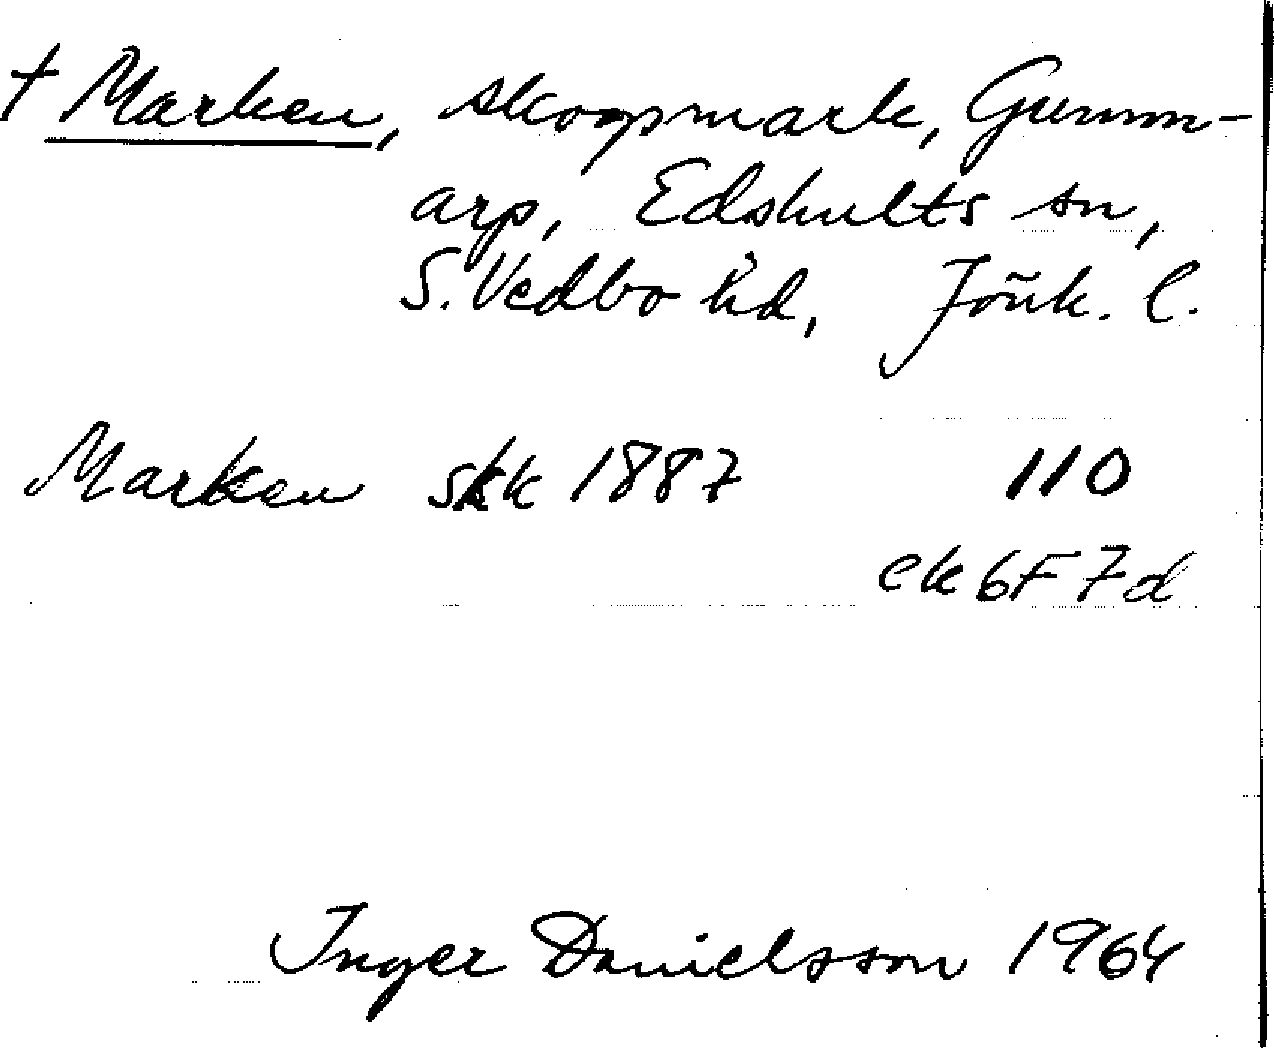 † Marken, skogsmark, Gumm-
arp, Edshults sn,
S. Vedbo hd, Jönk. l.
Marken skk 1887 110
ek 6F 7d
Inger Danielsson 1964